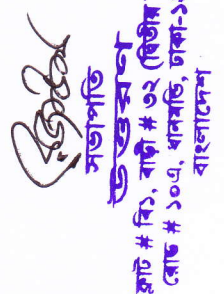 সভাপতি
উত্তরণ
ফ্ল্যাট # বি১, বাড়ী # ৩২ (দ্বিতীয়
রোড # ১০এ, ধানমন্ডি, ঢাকা-১
বাংলাদেশ